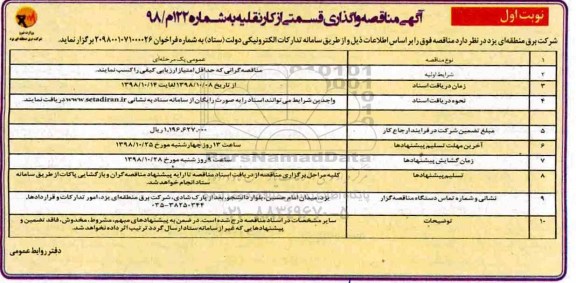 نوبت اول
آگهی مناقصه واگذاری قسمتی از کار نقلیه به شماره ۱۲۲/م/۹۸
شرکت برق منطقه‌ای یزد در نظر دارد مناقصه فوق را بر اساس اطلاعات ذیل و از طریق سامانه تدارکات الکترونیکی دولت (ستاد) به شماره فراخوان ۲۰۹۸۰۰۱۰۷۱۰۰۰۰۲۶ برگزار نماید.
۱ نوع مناقصه عمومی یک مرحله‌ای
۲ شرایط اولیه مناقصه گرانی که حداقل امتیاز ارزیابی کیفی را کسب نمایند.
۳ زمان دریافت اسناد از تاریخ ۱۳۹۸/۱۰/۰۸ لغایت ۱۳۹۸/۱۰/۱۴
۴ نحوه دریافت اسناد واجدین شرایط می توانند اسناد را به صورت رایگان از سامانه ستاد به نشانی www.setadiran.ir دریافت نمایند.
۵ مبلغ تضمین شرکت در فرایند ارجاع کار ۱,۱۹۶,۶۲۷,۰۰۰ ریال
۶ آخرین مهلت تسلیم پیشنهادها ساعت ۱۳ روز چهارشنبه مورخ ۱۳۹۸/۱۰/۲۵
۷ زمان گشایش پیشنهادها ساعت ۹ روز شنبه مورخ ۱۳۹۸/۱۰/۲۸
۸ تسلیم پیشنهادها کلیه مراحل برگزاری مناقصه از دریافت اسناد مناقصه تا ارایه پیشنهاد مناقصه گران و بازگشایی پاکات از طریق سامانه
ستاد انجام خواهد شد.
۹ نشانی و شماره تماس دستگاه مناقصه گزار یزد، میدان امام حسین، بلوار دانشجو، بعد از پارک شادی، شرکت برق منطقه‌ای یزد، امور تدارکات و قراردادها.
۰۳۵-۳۸۲۵۰۳۴۴
۱۰ توضیحات سایر مشخصات در اسناد مناقصه درج شده است. در ضمن به پیشنهادهای مبهم، مشروط، مخدوش، فاقد تضمین و
پیشنهادهایی که غیر از سامانه ستاد ارسال گردد ترتیب اثر داده نخواهد شد.
دفتر روابط عمومی